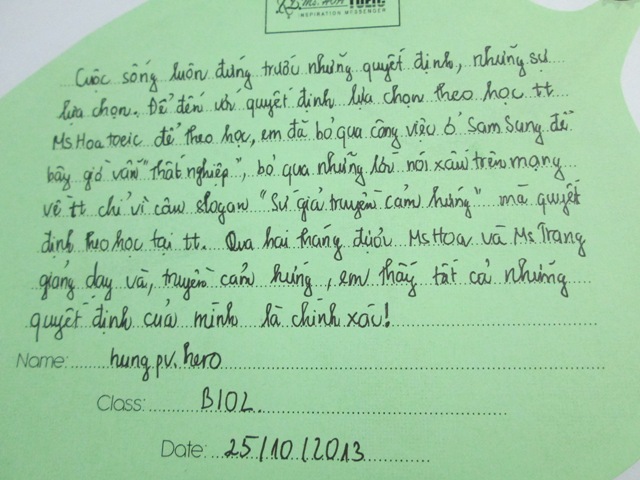 Ms. HOA TOEIC
INSPIRATION MESSENGER
Cuộc sống luôn đứng trước những quyết định, những sự
lựa chọn. Để đến với quyết định lựa chọn theo học tt
Ms Hoa toeic để theo học, em đã bỏ qua công việc ở SamSung để
bây giờ vẫn "thất nghiệp", bỏ qua những lời nói xấu trên mạng
về tt chỉ vì câu slogan "Sứ giả truyền cảm hứng" mà quyết
định theo học tại tt. Qua hai tháng được Ms Hoa và Ms Trang
giảng dạy và, truyền cảm hứng, em thấy tất cả những
quyết định của mình là chính xác!
Name: hung.pv.hero
Class: B102.
Date: 25/10/2013